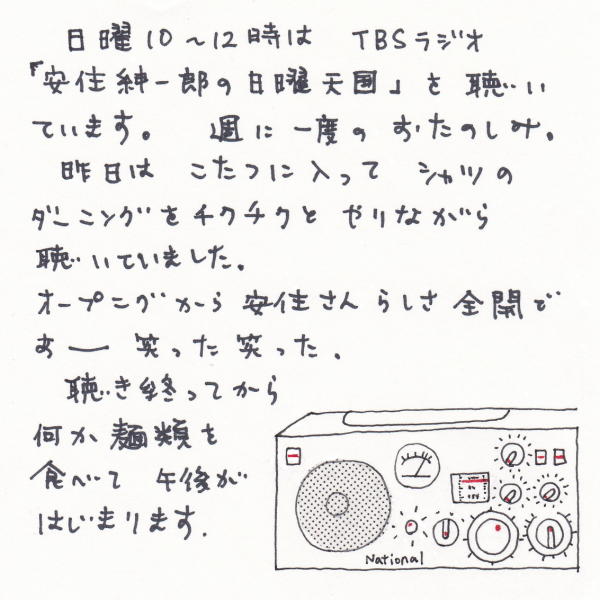 日曜10～12時は TBSラジオ
「安住紳一郎の日曜天国」を 聴い
ています。 週に一度の おたのしみ。
昨日は こたつに入って シャツの
ダーニングをチクチクと やりながら
聴いていました。
オープニングから 安住さん らしさ 全開で
あー 笑った笑った.
聴き終ってから
何か麺類を
食べて 午後が
はじまります.
National